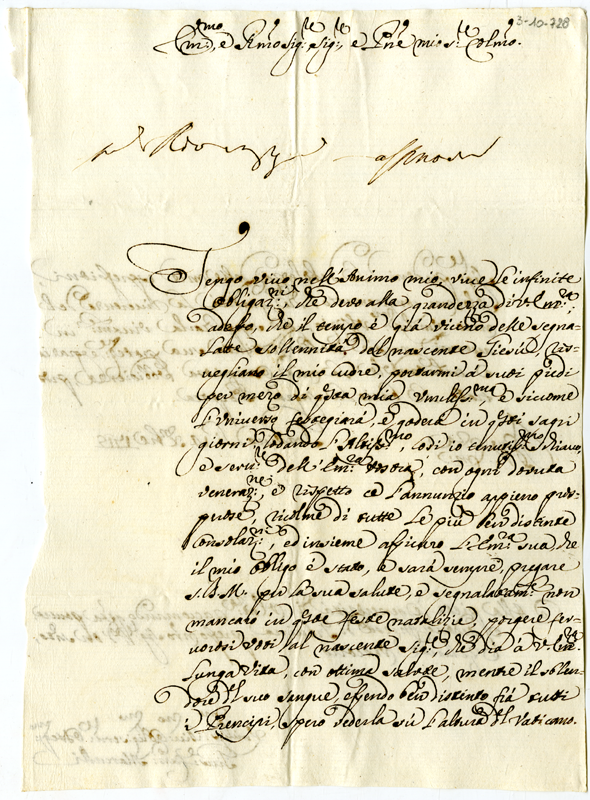 3-10-728
Em:mo, e Rmo Sig:re Sig:re, e Pne mio s:re Colmo.
Tengo vivo nell'Animo mio, vive le infinite
Obligaz:ni, che devo alla grandezza di V. Em:za,
adesso, che il tempo è già vicino delle segna-
late sollennità, del nascente Giesù, ris-
vegliano il mio cuore, portarmi a suoi piedi
per mezo di qsta mia Umiliss:ma, e siccome
l'Universo festegiarà, e goderà in qsti sagri
giorni, lodando l'Altiss:mo, così io Schiavo,
e serv:re dell'Em:za vostra, con ogni dovuta
veneraz:ne, e rispetto ce l'annunzio appieno pros-
pere, ricolme di tutte le più ben distinte
Consolaz:ni, ed insieme assicuro L'Em:za sua che
il mio obligo è stato, e sarà sempre, pregare
S.D.M. per la sua salute, e segnalatam:te non
mancarò in qste feste natalizie, porgere fer-
vorosi voti al nascente Sig:re, che dia a V. Em:za
lunga vita, con ottima salute, mentre il splen-
dore del suo sangue, essendo ben distinto frà tutti
i Prencipi, spero vederla sù l'altura del Vaticano.